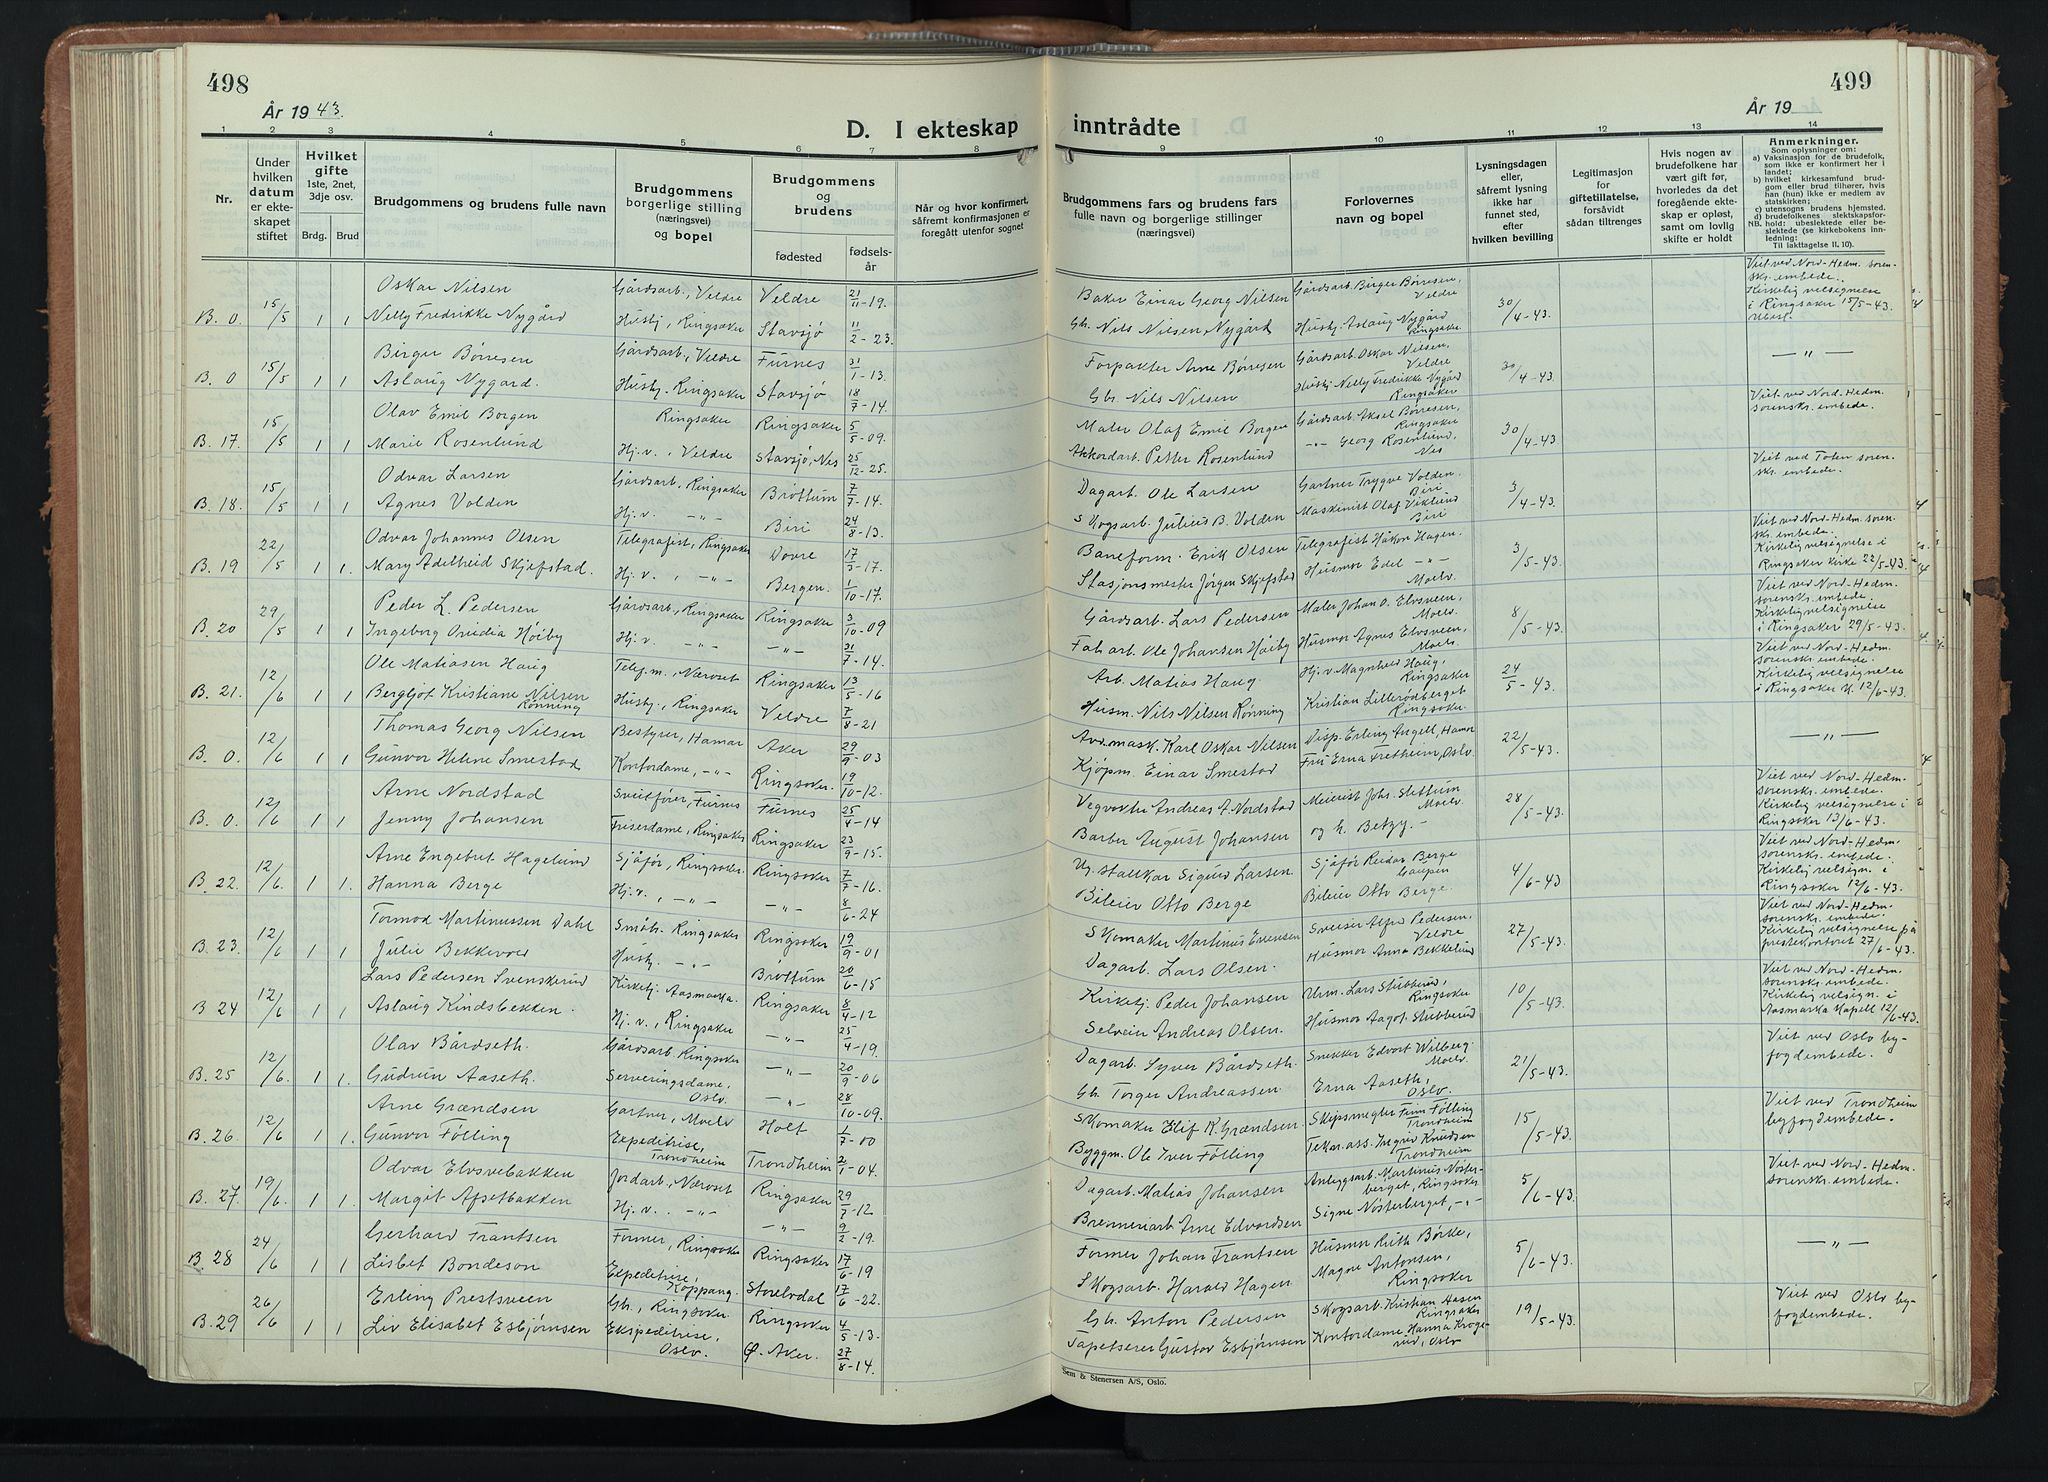 498
År 1943.
D. I ekteskap
1 2 3 4 5 6 7 8
Nr.
Under hvilken datum er ekteskapet stiftet
Hvilket gifte
1ste, 2net, 3dje osv.
Brdg. Brud
Brudgommens og brudens fulle navn
Brudgommens borgerlige stilling (næringsvei) og bopel
Brudgommens og brudens
fødested
fødselsår
Når og hvor konfirmert, såfremt konfirmasjonen er foregått utenfor sognet
Oskar Nilsen Gårdsarb., Veldre Veldre 21/11-19.
B. 0. 15/5 1 1 Nelly Fredrikke Nygård Hushj., Ringsaker Stavsjø 11/2-23.
Birger Børresen Gårdsarb., Veldre Furnes 31/1-13.
B. 0 15/5 1 1 Aslaug Nygård. Hushj. Ringsaker Stavsjø 18/7-14.
Olav Emil Borgen Ringsaker Ringsaker 5/5-09.
B. 17. 15/5 1 1 Marie Rosenlund Hj.v., Veldre Stavsjø, Nes 25/12-25.
Odvar Larsen Gårdsarb., Ringsaker Brøttum 7/7-14.
B. 18. 15/5 1 1 Agnes Volden Hj.v. -"- Biri 24/8-13.
Odvar Johannes Olsen Telegrafist, Ringsaker Dovre 17/3-17.
B. 19 22/5 1 1. Mary Adelheid Skjefstad. Hj.v., -"- Bergen. 1/10-17.
Peder L. Pedersen Gårdsarb., Ringsaker Ringsaker 3/10-09
B. 20 29/5 1 1 Ingeborg Høiby Hj.v. -"- -"- 21/7-14.
Ole Matiasen Haug Telef.m., Næroset Ringsaker 13/5-16
B. 21. 12/6 1 1 Bergljot Kristiane Nilsen Rønning Hushj., Ringsaker Veldre 7/8-21
Thomas Georg Nilsen Bestyrer, Hamar Aker 29/9-03
B. 0. 12/6 1 1 Gunvor Helene Smestad Kontordame, -"- Ringsaker. 19/10-12.
Arne Nordstad Furnes Furnes 25/4-14
B. 0. 12/6 1 1 Jenny Johansen Friserdame, Ringsaker Ringsaker 23/9-15.
Arne Engebret Hagelund Sjåfør, Ringsaker. Ringsaker 7/7-16.
B. 22. 12/6. 1 1. Hanna Berge Hj.v., -"- -"- 8/6-24
Tormod Martinussen Dahl Småbr. Ringsaker Ringsaker 19/9-01
B. 23. 12/6 1 1 Julie Bekkevold Hushj. -"- Brøttum 20/6-15
Lars Pedersen Svenskerud Kirketj. Aasmarka. Ringsaker 8/4-12
B 24 12/6 1 1 Aslaug Kindsbekken. Hj.v., Ringsaker -"- 25/4-19.
Olav Bårdseth. Gårdsarb. Ringsaker -"- 20/9-06
B. 25 12/6. 1 1. Gudrun Aaseth. Serveringsdame, Oslo. -"- 28/10-09.
Arne Grændsen Gartner, Moelv Holt 1/7-00
B. 26. 12/6 1 1. Gunvor Følling Expeditrise, Trondheim Trondheim 2/1-04.
Odvar Elvsvebakken Jordarb., Næroset Ringsaker 29/7-12
B. 27. 19/6. 1 1 Margit Afsetbakken Hj.v. -"- -"- 9/2-19.
Gerhard Frantsen Former, Ringsaker Ringsaker 17/6-19
B. 28 24/6 1 1 Lisbet Bondeson Expeditrise, Koppang. Storelvdal 17/6-22.
Erling Prestsveen Gbr., Ringsaker Ringsaker 4/5-13.
B. 29 26/6 1 1 Liv Elisabet Esbjørnsen Ekspeditrise, Oslo. Ø. Aker. 27/8-14.
499
År 19
inntrådte
9 10 11 12 13 14
Brudgommens fars og brudens fars fulle navn og borgerlige stillinger (næringsvei)
Forlovernes navn og bopel
Lysningsdagen eller, såfremt lysning ikke har funnet sted, efter hvilken bevilling
Legitimasjon for giftetillatelse, forsåvidt sådan tiltrenges
Hvis nogen av brudefolkene har vært gift før, hvorledes da det foregående ekteskap er opløst, samt om lovlig skifte er holdt
Anmerkninger.
Som oplysninger om:
a) Vaksinasjon for de brudefolk, som ikke er konfirmert her i landet;
b) hvilket kirkesamfund brudgom eller brud tilhører, hvis han (hun) ikke er medlem av statskirken;
c) utensogns brudens hjemsted.
d) brudefolkenes slektskapsforhold: ubeslektede eller beslektede (se kirkebokens innledning:
NB. Til iakttagelse II. 10).
Baker Einar Georg Nilsen Gårdsarb. Birger Børresen, Veldre 30/4-43. Viet ved Nord-Hedm. sorensk. embede. Kirkelig velsignelse i Ringsaker 15/5-43. Ubesl.
Gb. Nils Nilsen Nygård Hushj. Aslaug Nygård Ringsaker.
Forpakter Arne Børresen Gårdsarb. Oskar Nilsen, Veldre 30/4-43. -"-
Gbr. Nils Nilsen Hushj. Nelly Fredrikke Nygård Ringsaker
Maler Olaf Emil Borgen Gårdsarb. Aksel Børresen, Ringsaker 30/4-43. Viet ved Nord-Hedm. sorensk. embede.
Akkordarb. Petter Rosenlund -"- Georg Rosenlund, Nes
Dagarb. Ole Larsen Gartner Trygve Volden. Biri 3/4-43. Viet ved Toten sorensk. embede.
Skogsarb. Julius B. Volden Maskinist Olaf Viklund Biri
Baneform. Erik Olsen Telegrafist Håkon Hagen. 3/5-43. Viet ved Nord-Hedm. sorensk. embede. Kirkelig velsignelse i Ringsaker kirke 22/5-43.
Stasjonsmester Jørgen Skjefstad Husmor Edel -"- Moelv.
Gårdsarb. Lars Pedersen Maler Johan O. Elvsveen, Moelv. 8/5-43. Viet ved Nord-Hedm. sorensk. embede. Kirkelig velsignelse i Ringsaker 29/5-43.
Fab.arb. Ole Johansen Høiby Husmor Agnes Elvsveen, Moelv.
Arb. Matias Haug Hj.v. Magnhild Haug, Ringsaker 24/5-43. Viet ved Nord-Hedm. sorensk. embede. Kirkelig velsignelse i Ringsaker k. 12/6-43.
Husm. Nils Nilsen Rønning Kristian Lillerødberget Ringsaker.
Avd.mask. Karl Oskar Nilsen Disp. Erling Engell, Hamar 22/5-43. -"-
Kjøpm. Einar Smestad Fru Erna Fretheim, Oslo.
Vegvokter Andreas A. Nordstad Meierist Johs. Slettum Moelv. 28/5-43. Viet ved Nord-Hedm. sorensk. embede. Kirkelig velsignelse i Ringsaker 13/6-43.
Barber August Johansen og h. Betzy. -
Ug. stallkar Sigurd Larsen Sjåfør Reidar Berge Gaupen 4/6-43 Viet ved Nord-Hedm. sorensk. embede. Kirkelig velsign. i Ringsaker 12/6-43.
Bileier Otto Berge Bileier Otto Berge.
Skomaker Martinus Evensen Sveiser Alfred Pedersen, Veldre 27/5-43. Viet ved Nord-Hedm. sorensk. embede. Kirkelig velsignelse på prestekontoret 27/6-43.
Dagarb. Lars Olsen. Husmor Anna Bekkelund
Kirketj. Peder Johansen Urm. Lars Stubberud, Ringsaker 10/5-43. Viet ved Nord-Hedm. sorensk. embede. Kirkelig velsign. i Aasmarka Kapell 12/6-43.
Selveier Andreas Olsen. Husmor Aagot Stubberud
Dagarb. Syver Bårdseth. Snekker Edvart Wilberg. Moelv. 21/5-43. Viet ved Oslo byfogdembede.
Gb. Torger Andreassen. Erna Aaseth, Oslo
Skomaker Elif K. Grændsen Skipsmegler Finn Følling Trondheim 15/5-43. Viet ved Trondheim byfogdembede.
Byggm. Ole Iver Følling Tekn. ass. Ingrid Knudsen Trondheim
Dagarb. Matias Johansen Anleggsarb. Martinus Nosterberget, Ringsaker 5/6-43. Viet ved Nord-Hedm. sorensk. embede.
Brenneriarb. Arne Edvardsen Signe Nosterberget, -"-
Former Johan Frantsen Husmor Ruth Børke, 5/6-43. -"-
Skogsarb. Harald Hagen Magne Antonsen, Ringsaker
Gbr. Anton Pedersen Skogsarb. Kristian Aasen Ringsaker 19/5-43. Viet ved Oslo byfogdembede.
Tapetserer Gustav Esbjørnsen Kontordame Hanna Krogerud, Oslo
Sem & Stenersen A/S, Oslo.